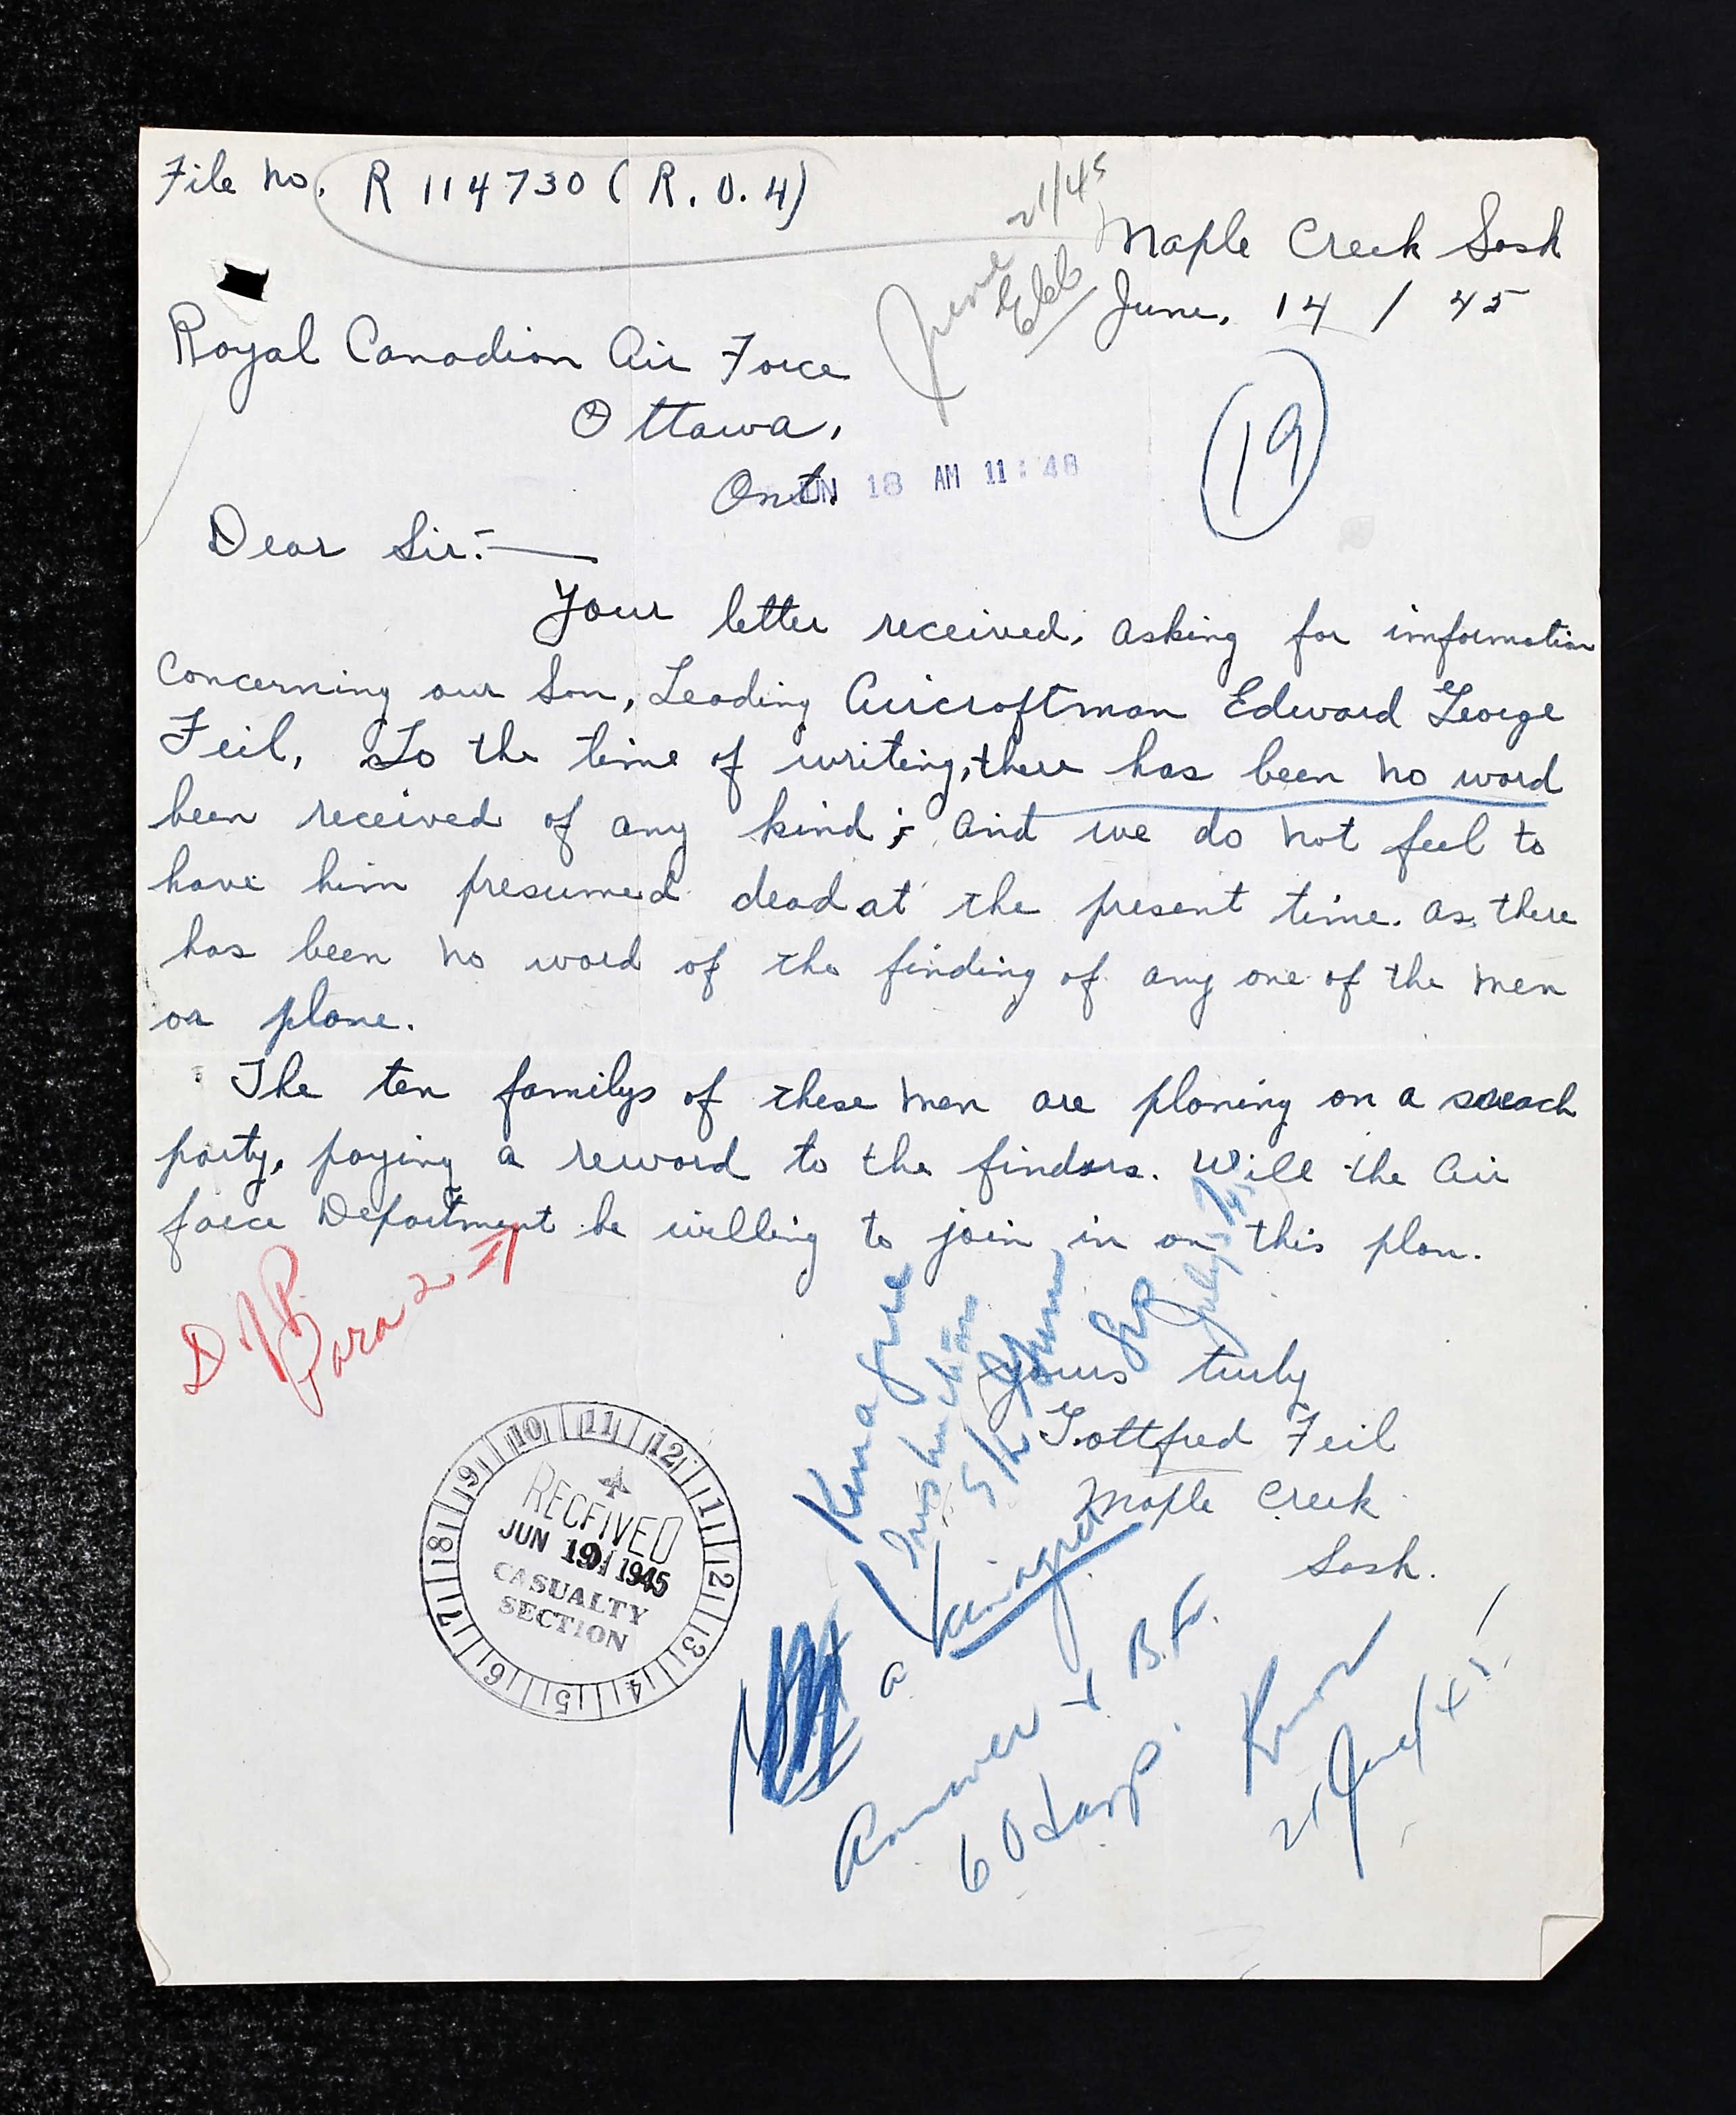 File No. R 114730 (R.O.4)
June 21/45
Maple Creek Sask
June, 14 / 45
Royal Canadian Air Force
Ottawa,
Ont.
JUN 18 AM 11:48
19
Dear Sir:—
Your letter received, asking for imformation
Concerning our Son, Leading Aircraftman Edward George
Feil, To the time of writing, there has been no word
been received of any kind; and we do not feel to
have him presumed dead at the present time. as there
has been no word of the finding of any one of the men
or plane.
The ten familys of these men are planing on a seach
party, paying a reward to the finders. Will the Air
force Department be willing to join in on this plan.
Para 2
Yours truly
Gottfred Feil
Maple Creek
Sask.
RECEIVED
JUN 19 1945
CASUALTY
SECTION
10 11 12 1 2 3 4 5 6 7 8 9
a
Answer & B.F.
21 June/45